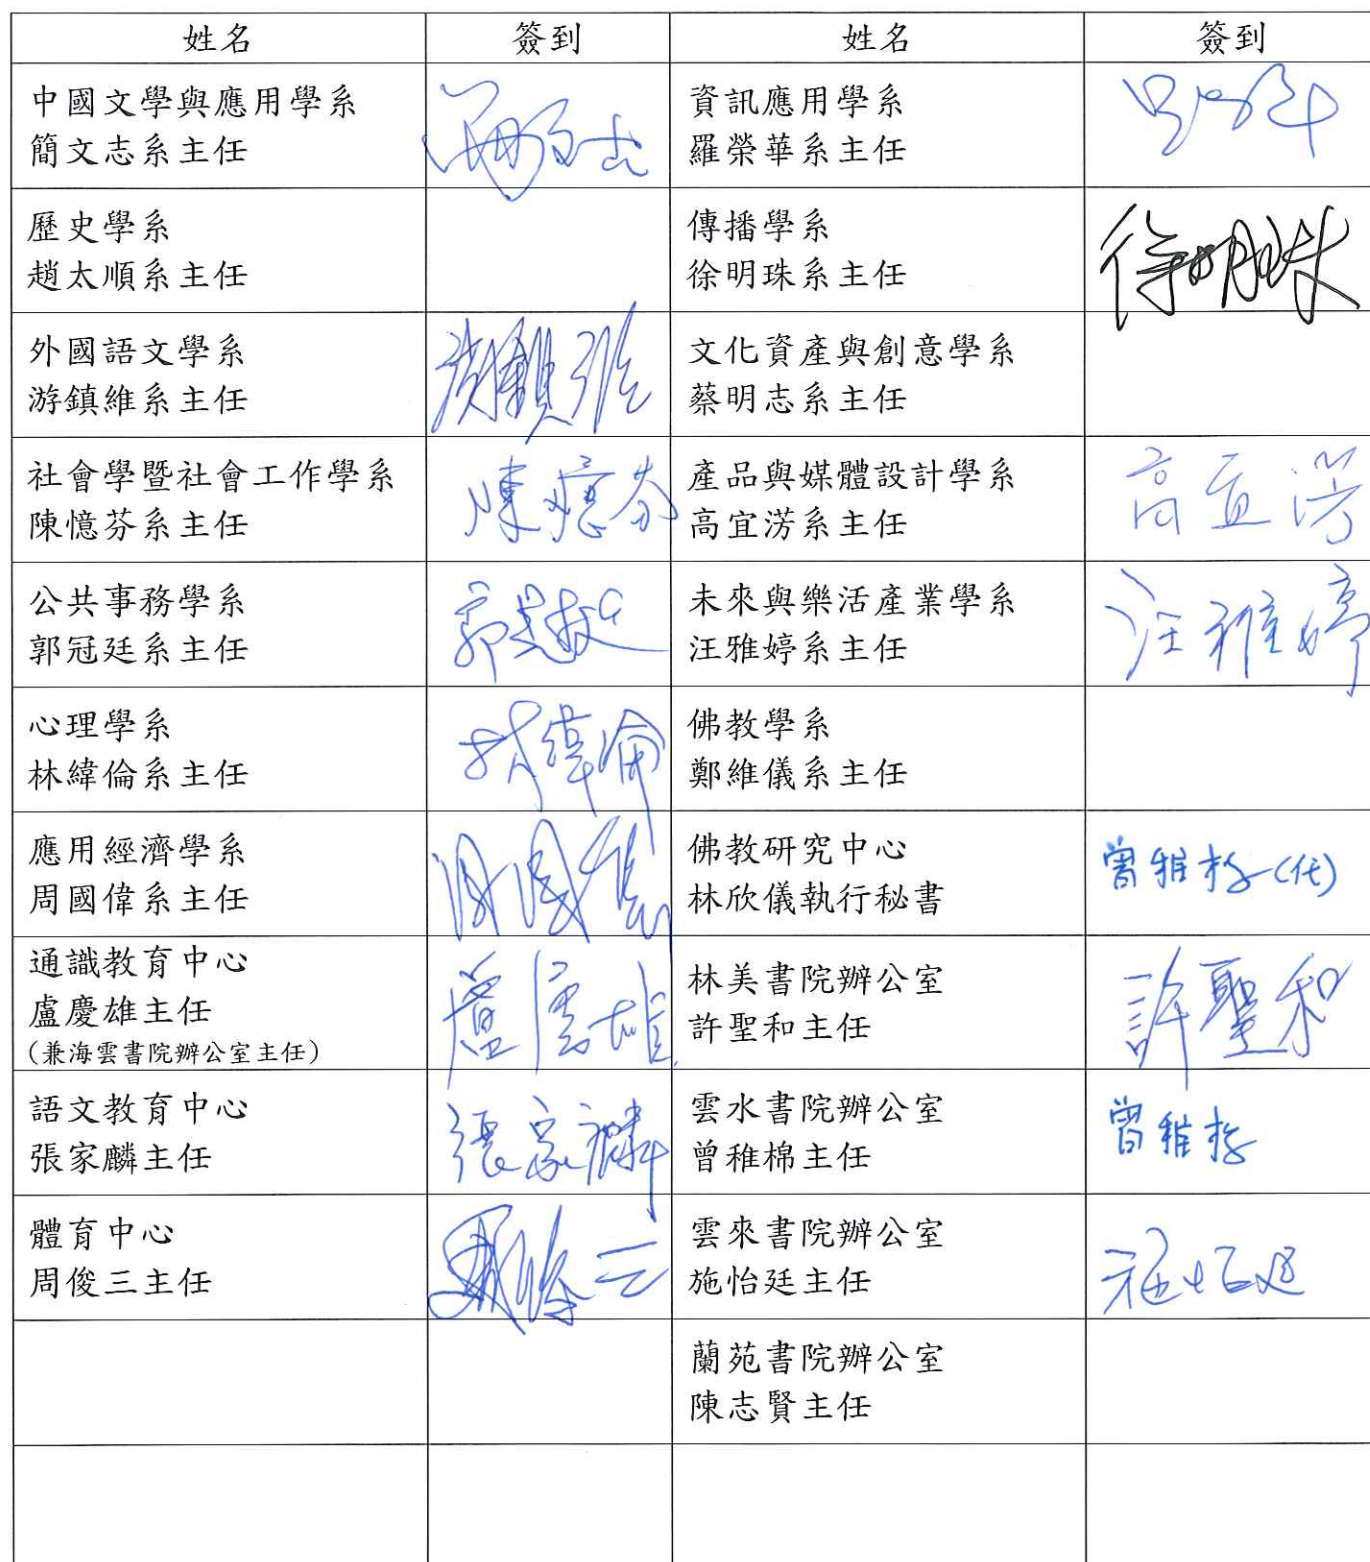 姓名 簽到 姓名 簽到
中國文學與應用學系
簡文志系主任
資訊應用學系
羅榮華系主任
歷史學系
趙太順系主任
傳播學系
徐明珠系主任
徐明珠
外國語文學系
游鎮維系主任
游鎮維
文化資產與創意學系
蔡明志系主任
社會學暨社會工作學系
陳憶芬系主任
陳憶芬
產品與媒體設計學系
高宜淓系主任
高宜淓
公共事務學系
郭冠廷系主任
未來與樂活產業學系
汪雅婷系主任
汪雅婷
心理學系
林緯倫系主任
林緯倫
佛教學系
鄭維儀系主任
應用經濟學系
周國偉系主任
周國偉
佛教研究中心
林欣儀執行秘書
曾稚棉(代)
通識教育中心
盧慶雄主任
(兼海雲書院辦公室主任)
盧慶雄
林美書院辦公室
許聖和主任
許聖和
語文教育中心
張家麟主任
張家麟
雲水書院辦公室
曾稚棉主任
曾稚棉
體育中心
周俊三主任
周俊三
雲來書院辦公室
施怡廷主任
施怡廷
蘭苑書院辦公室
陳志賢主任